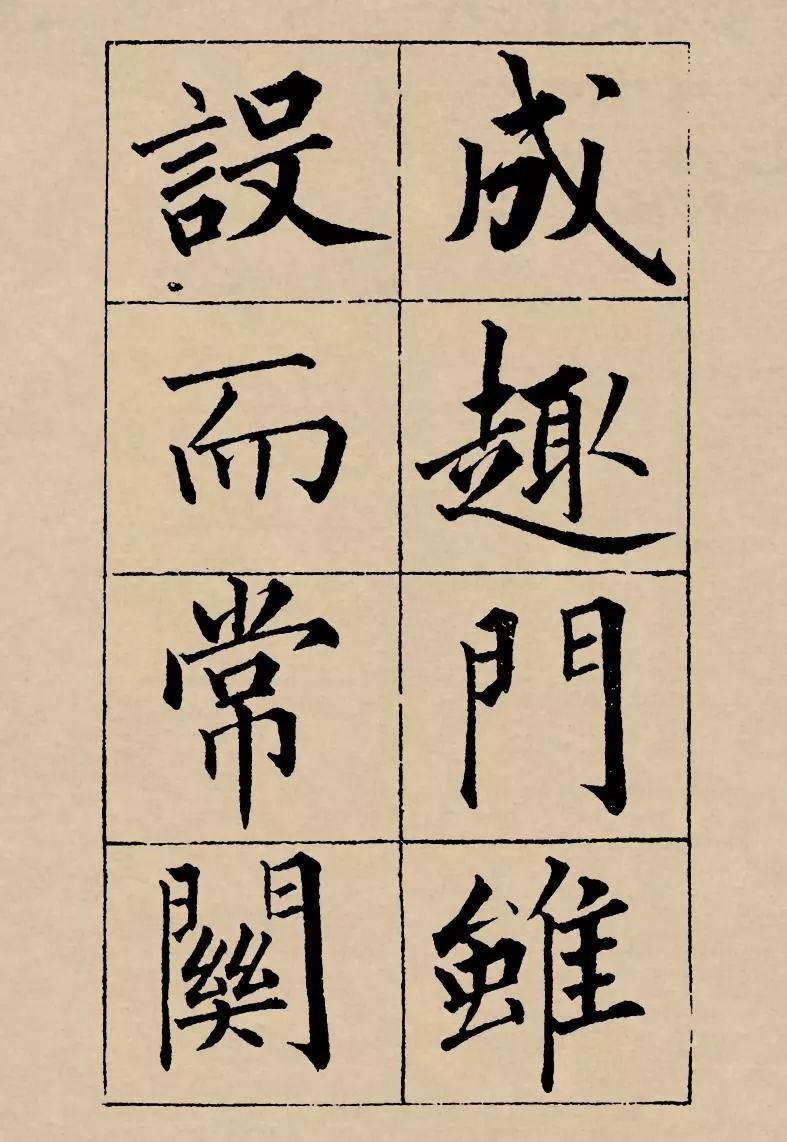 成趣門雖
設而常關